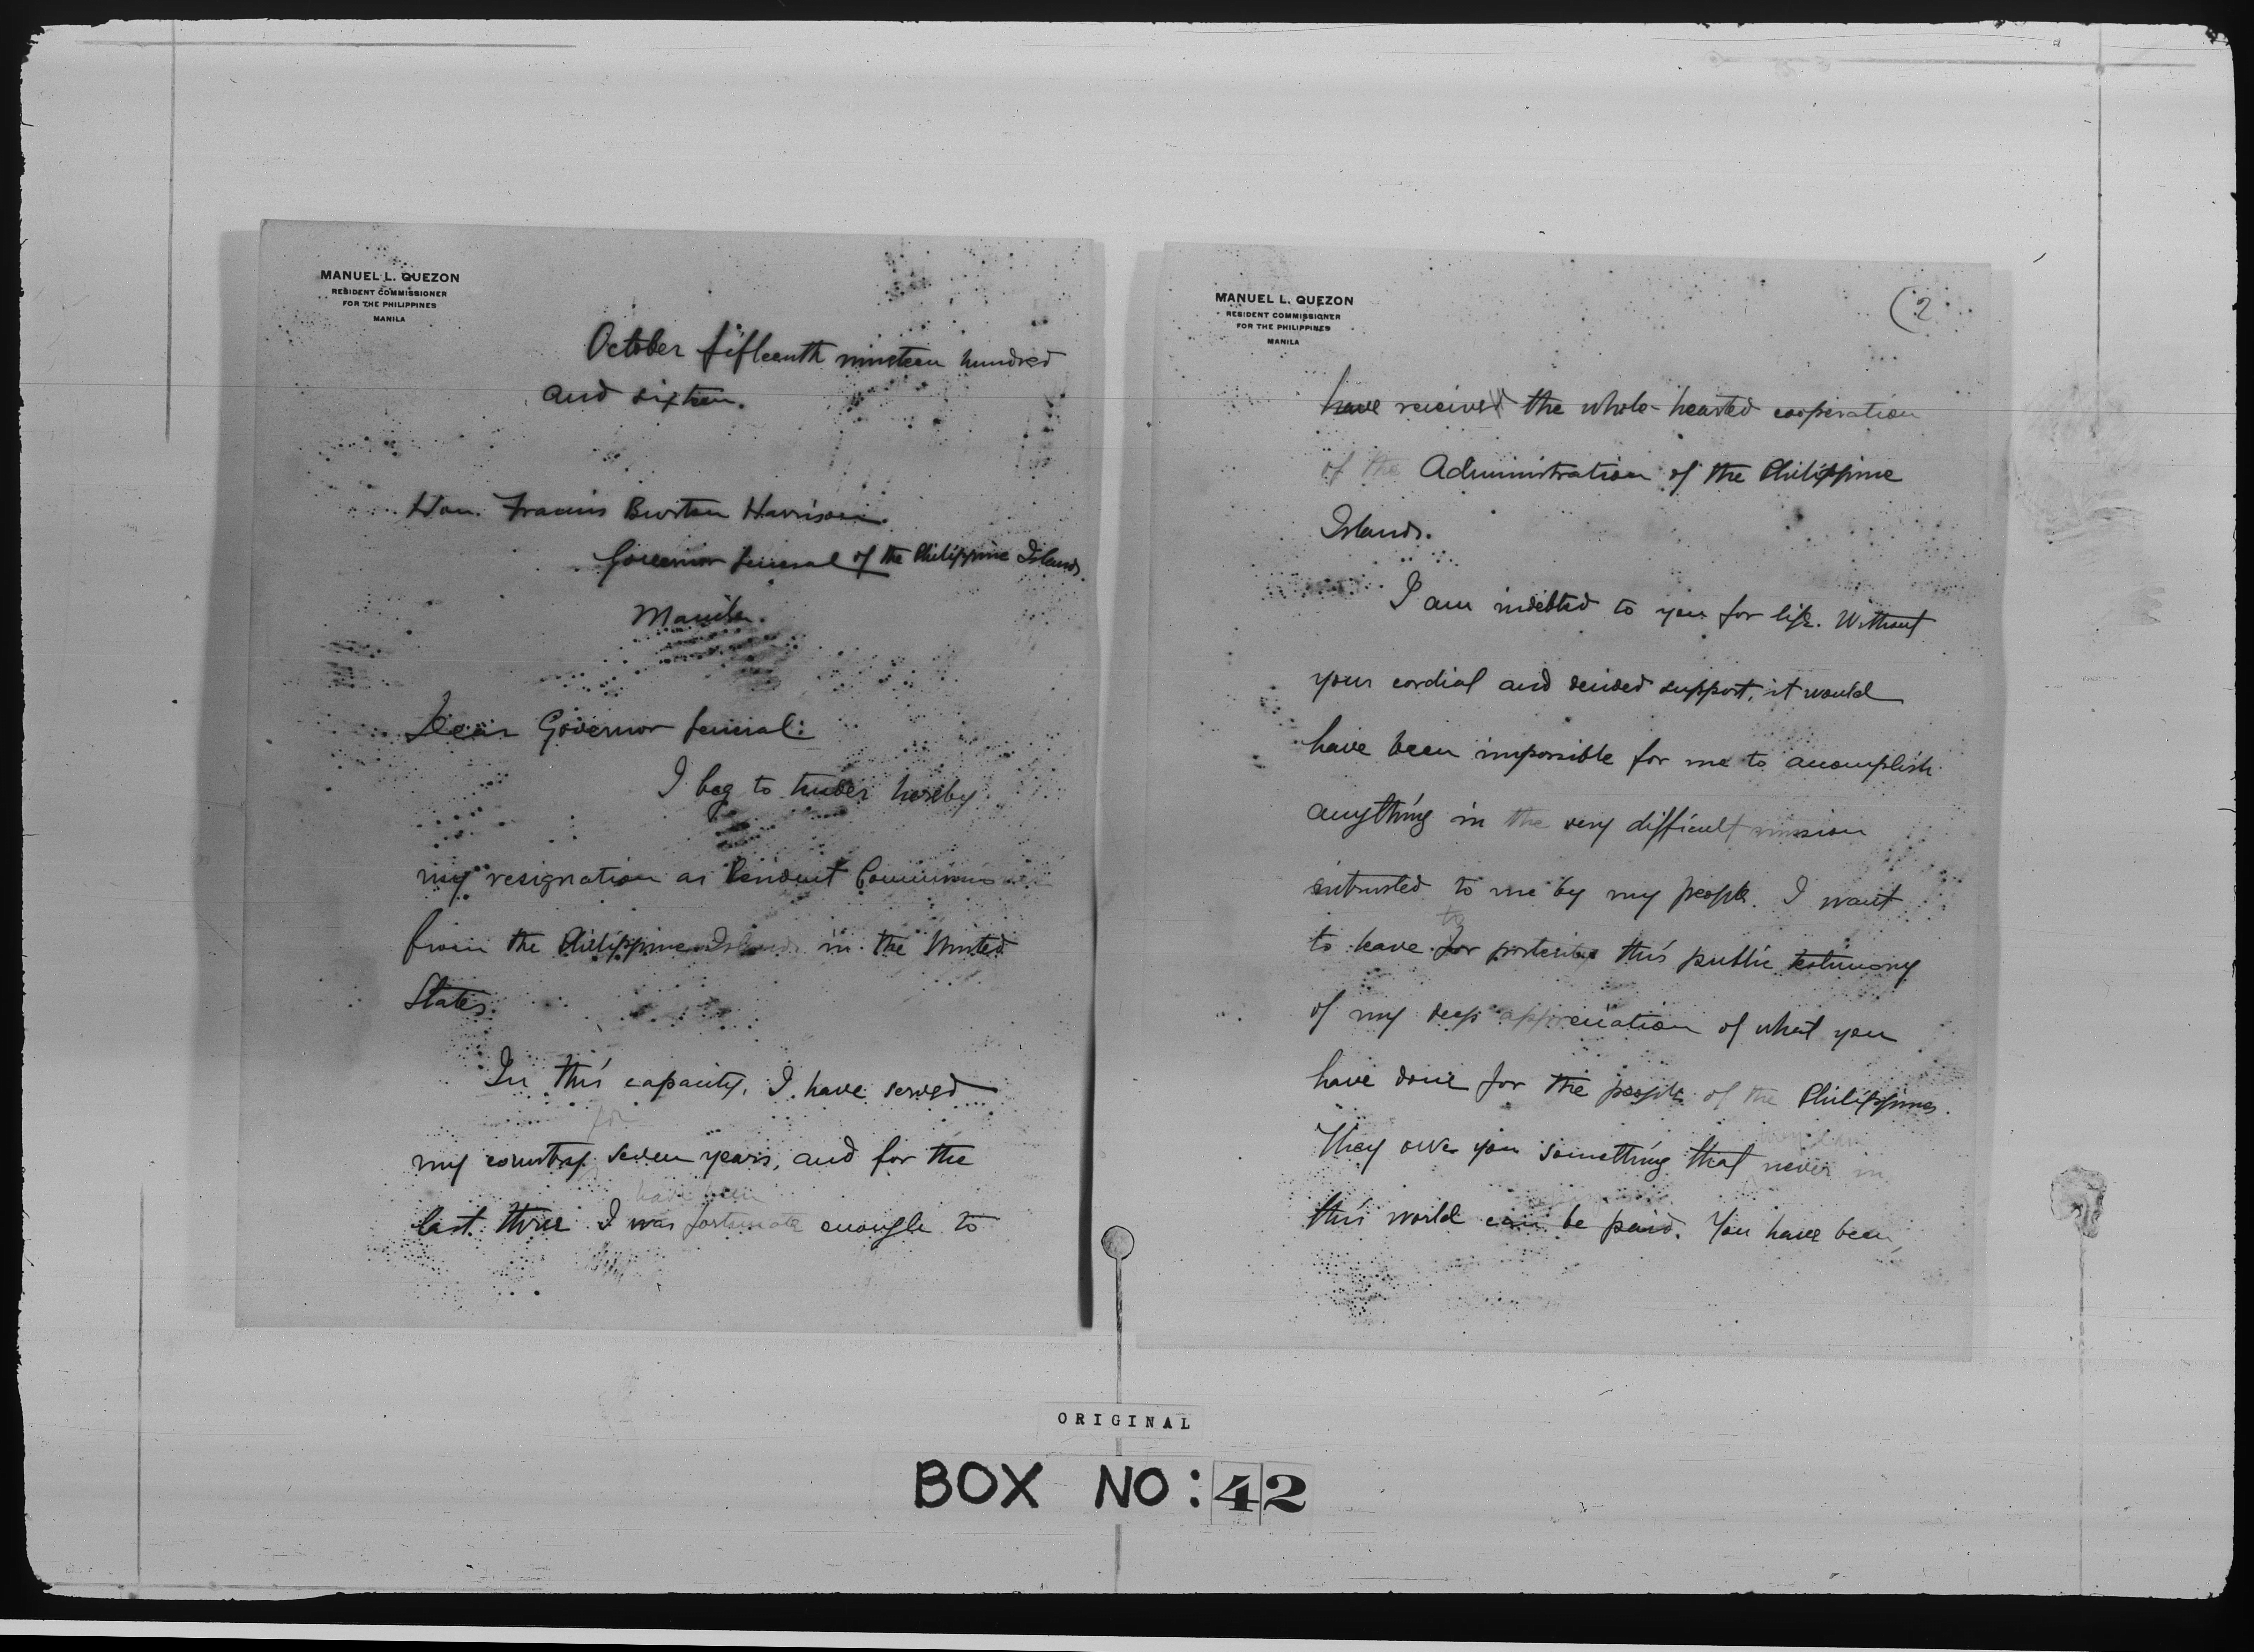 MANUEL L. QUEZON
RESIDENT COMMISSIONER
FOR THE PHILIPPINES
MANILA
October fifteenth nineteen hundred
and sixteen.
Hon. Francis Burton Harrison.
Governor General of the Philippine Islands.
Manila.
Dear Governor General:
I beg to tender hereby
my resignation as Resident Commissioner
from the Philippine Islands in the United
States.
In this capacity, I have served
for
my country seven years, and for the
have been
last three I was fortunate enough to
MANUEL L. QUEZON
RESIDENT COMMISSIONER
FOR THE PHILIPPINES
MANILA
(2
have received the whole-hearted cooperation
of the Administration of the Philippine
Islands.
I am indebted to you for life. Without
your cordial and decided support, it would
have been impossible for me to accomplish
anything in the very difficult mission
entrusted to me by my people. I want
to
to leave for posterity this public testimony
of my deep appreciation of what you
have done for the people of the Philippines.
they can
They owe you something that never in
this world can be paid. You have been,
ORIGINAL
BOX NO: 42